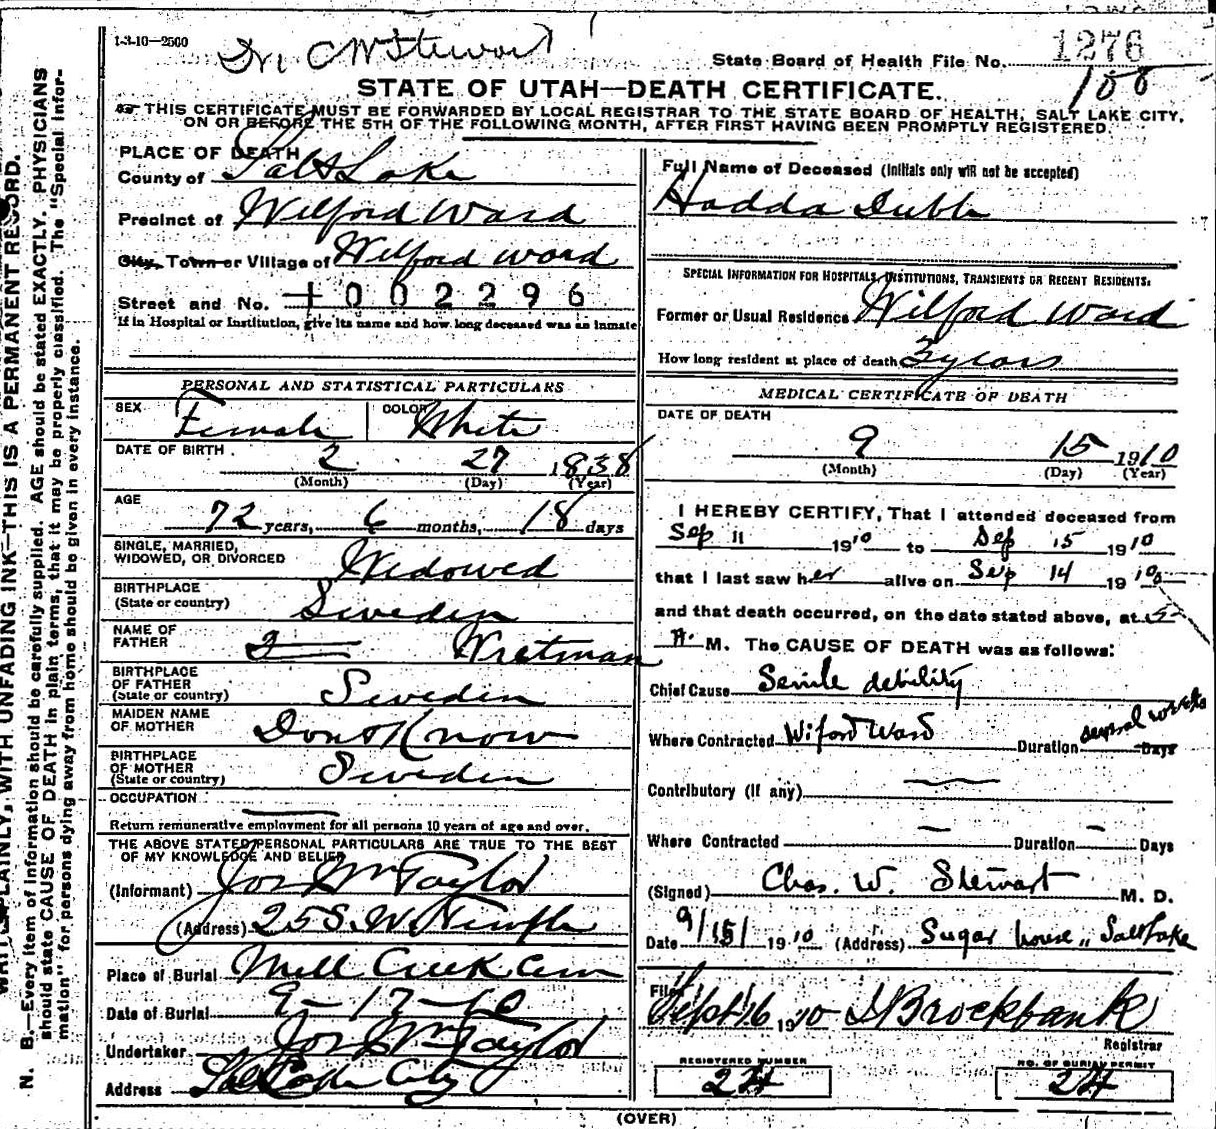 1-3-10—2500
Dr. C W Stewart
State Board of Health File No. 1276
108
STATE OF UTAH—DEATH CERTIFICATE.
THIS CERTIFICATE MUST BE FORWARDED BY LOCAL REGISTRAR TO THE STATE BOARD OF HEALTH, SALT LAKE CITY,
ON OR BEFORE THE 5TH OF THE FOLLOWING MONTH, AFTER FIRST HAVING BEEN PROMPTLY REGISTERED.
PLACE OF DEATH
County of Salt Lake
Precinct of Wilford Ward
City, Town or Village of Wilford Ward
Street and No. 1002296
If in Hospital or Institution, give its name and how long deceased was an inmate
PERSONAL AND STATISTICAL PARTICULARS
SEX Female COLOR White
DATE OF BIRTH 2 27 1838
(Month) (Day) (Year)
AGE
72 years, 6 months, 18 days
SINGLE, MARRIED,
WIDOWED, OR DIVORCED Widowed
BIRTHPLACE
(State or country) Sweden
NAME OF
FATHER Wretman
BIRTHPLACE
OF FATHER
(State or country) Sweden
MAIDEN NAME
OF MOTHER Dont Know
BIRTHPLACE
OF MOTHER
(State or country) Sweden
OCCUPATION
Return remunerative employment for all persons 10 years of age and over.
THE ABOVE STATED PERSONAL PARTICULARS ARE TRUE TO THE BEST
OF MY KNOWLEDGE AND BELIEF
(Informant) Jos Wm Taylor
(Address) 25 S. W. Temple
Place of Burial Mill Creek Cem
Date of Burial 9-17-10
Undertaker Jos Wm Taylor
Address Salt Lake City
Full Name of Deceased (Initials only will not be accepted)
Hadda Dubb
SPECIAL INFORMATION FOR HOSPITALS, INSTITUTIONS, TRANSIENTS OR RECENT RESIDENTS.
Former or Usual Residence Wilford Ward
How long resident at place of death 3 years
MEDICAL CERTIFICATE OF DEATH
DATE OF DEATH
9 15 1910
(Month) (Day) (Year)
I HEREBY CERTIFY, That I attended deceased from
Sep 11 1910 to Sep 15 1910
that I last saw her alive on Sep 14 1910
and that death occurred, on the date stated above, at 5
A. M. The CAUSE OF DEATH was as follows:
Chief Cause Senile debility
Where Contracted Wiford Ward Duration several weeks Days
Contributory (if any)
Where Contracted Duration Days
(Signed) Chas. W. Stewart M. D.
Date 9/15/ 1910 (Address) Sugar house, Salt Lake
Filed Sept 16 1910 Brockbank
Registrar
REGISTERED NUMBER
224
NO. OF BURIAL PERMIT
224
(OVER)
WRITE PLAINLY, WITH UNFADING INK—THIS IS A PERMANENT RECORD.
N. B.—Every item of information should be carefully supplied. AGE should be stated EXACTLY. PHYSICIANS
should state CAUSE OF DEATH in plain terms, that it may be properly classified. The "Special Infor-
mation" for persons dying away from home should be given in every instance.